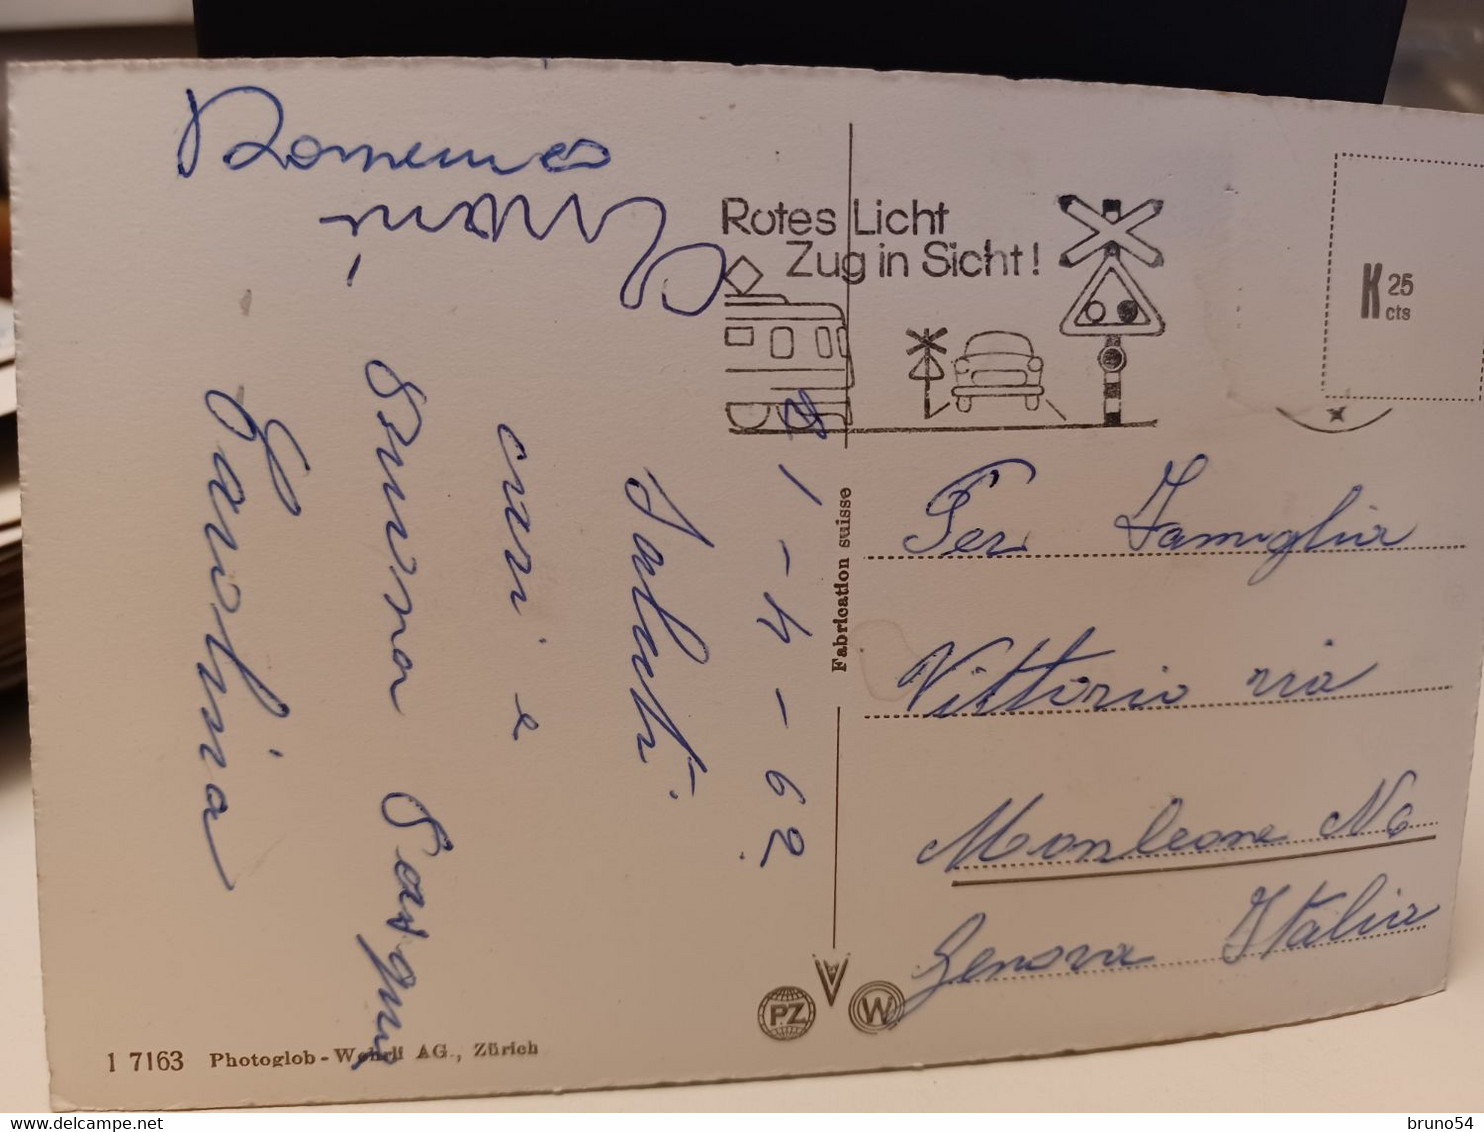 21-4-62
Saluti
cari e
Buona Pasqua
Carolina
Rotes Licht
Zug in Sicht!
K 25
cts
Fabrication suisse
Per Famiglia
Vittorio
Monleone
Genova Italia
PZ
W
1 7163 Photoglob-Wehrli AG., Zürich
delcampe.net
bruno54